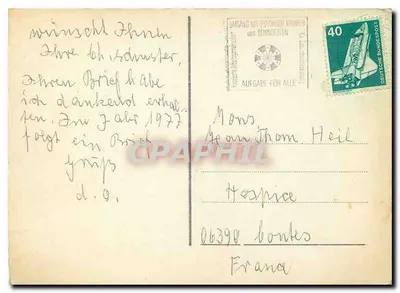 wünscht Ihnen
Ihre Ch. Schuster,
Ihren Brief habe
ich dankend erhal-
ten. Im Jahr 1977
folgt ein Brief
Gruß
d. O.
UMGANG MIT PSYCHISCH KRANKEN
UND BEHINDERTEN
AUFGABE FÜR ALLE
40
DEUTSCHE BUNDESPOST
Mons
Jean Thom. Heil
Hospice
06390 Contes
France
CPAPHIL